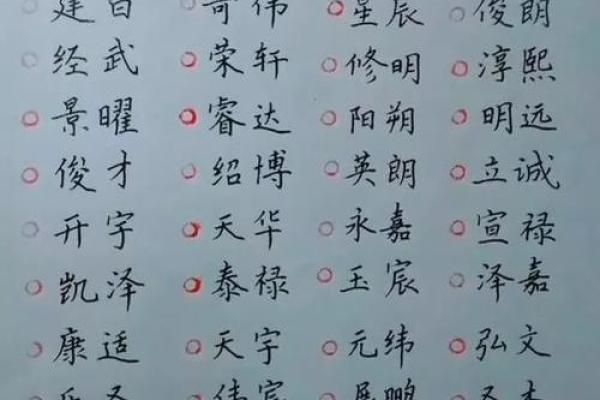 建百 哥伟 星辰 俊朗
经武 荣轩 修明 淳熙
景曜 睿达 阳朔 明远
俊才 绍博 英朗 立诚
开宇 天华 永嘉 宣禄
凯泽 泰禄 玉宸 泽嘉
康适 天宇 元纬 弘文
伟宸 展鹏